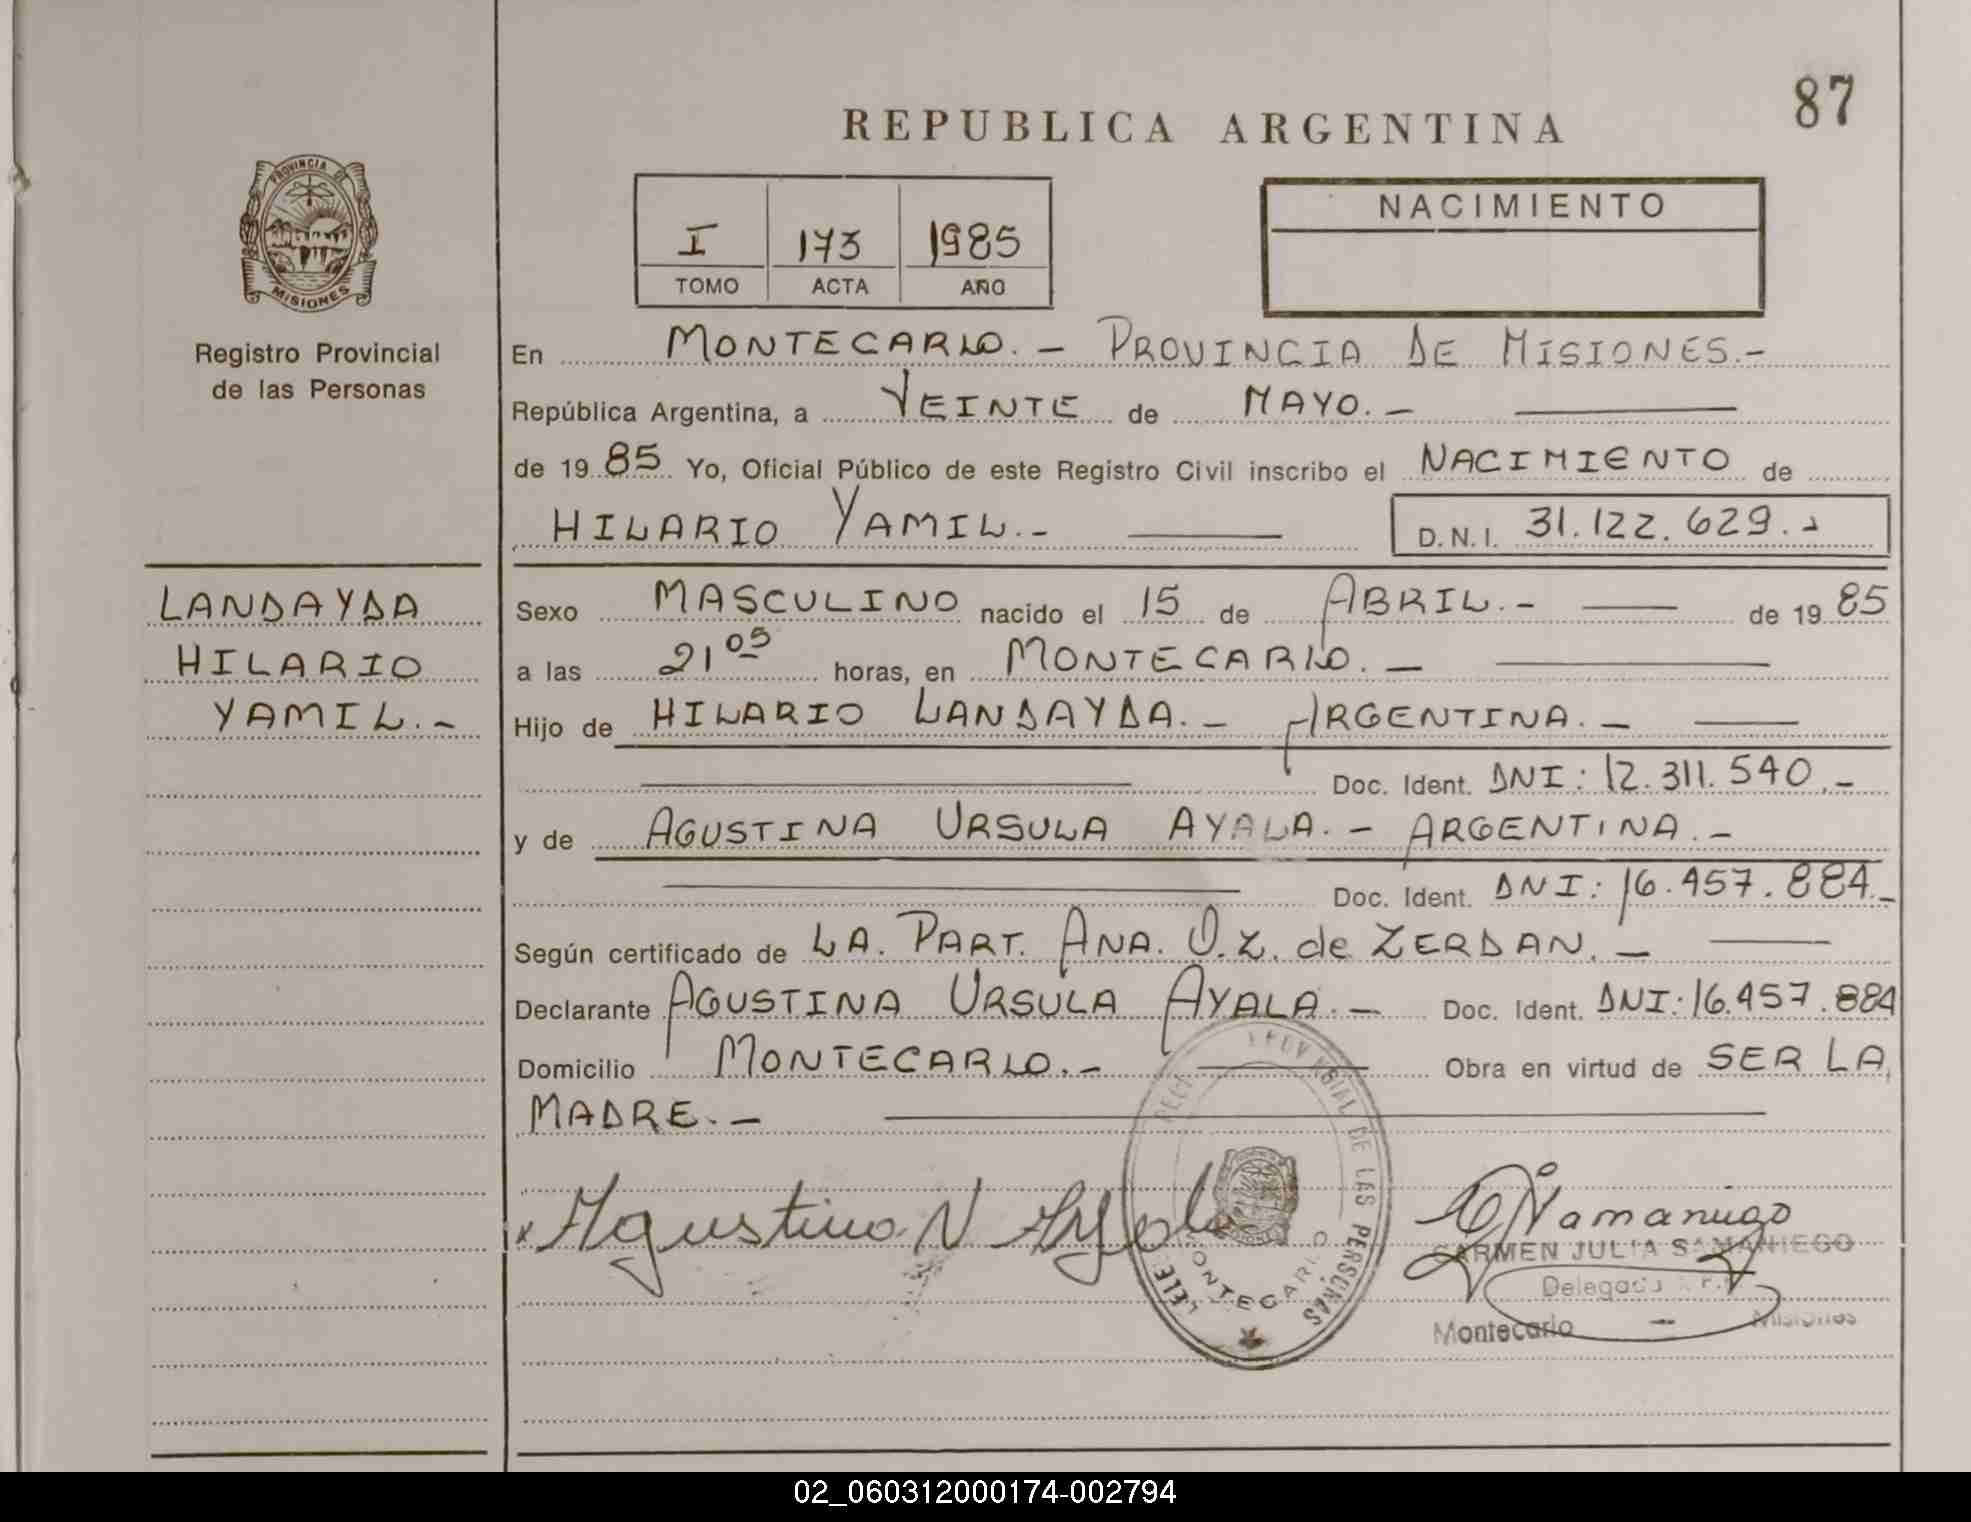 87
REPUBLICA ARGENTINA
PROVINCIA DE
MISIONES
Registro Provincial
de las Personas
I 173 1985
TOMO ACTA AÑO
NACIMIENTO
En MONTECARLO.- PROVINCIA DE MISIONES.-
República Argentina, a VEINTE de MAYO.-
de 1985 Yo, Oficial Público de este Registro Civil inscribo el NACIMIENTO de
HILARIO YAMIL.- D.N.I. 31.122.629.-
LANDAYDA
HILARIO
YAMIL.-
Sexo MASCULINO nacido el 15 de ABRIL.- de 1985
a las 21 05 horas, en MONTECARLO.-
Hijo de HILARIO LANDAYDA.- ARGENTINA.-
Doc. Ident. DNI: 12.311.540.-
y de AGUSTINA URSULA AYALA.- ARGENTINA.-
Doc. Ident. DNI: 16.457.884.-
Según certificado de LA. PART. ANA. O.Z. de ZERDAN.-
Declarante AGUSTINA URSULA AYALA.- Doc. Ident. DNI: 16.457.884
Domicilio MONTECARLO.- Obra en virtud de SER LA
MADRE.-
Agustina Ayala
DE LAS PERSONAS
MONTECARLO
CARMEN JULIA SAMANIEGO
Montecarlo - Misiones
02_060312000174-002794